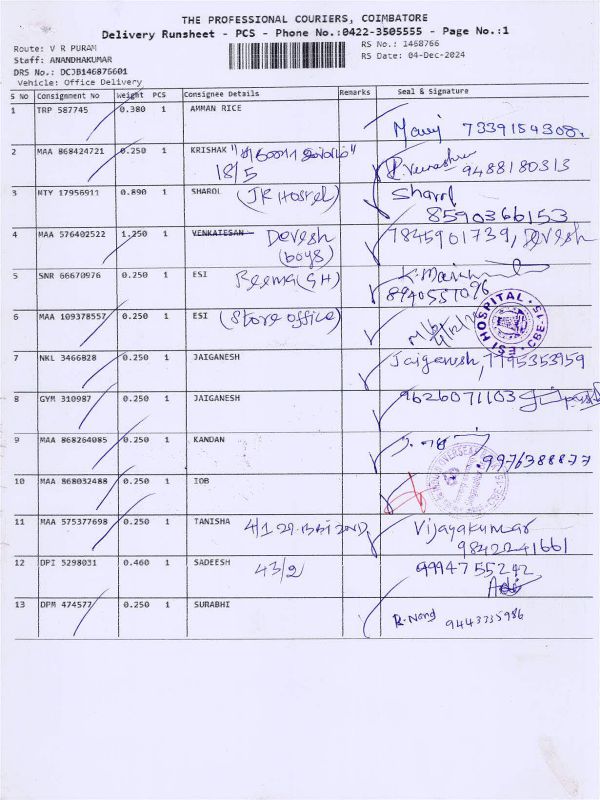 THE PROFESSIONAL COURIERS, COIMBATORE
Delivery Runsheet - PCS - Phone No.:0422-3505555 - Page No.:1
Route: V R PURAM
RS No.: 1468766
Staff: ANANDHAKUMAR
RS Date: 04-Dec-2024
DRS No.: DCJB146876601
Vehicle: Office Delivery
S No Consignment No Weight PCS Consignee Details Remarks Seal & Signature
1 TRP 587745 0.380 1 AMMAN RICE 7339154308.
2 MAA 868424721 0.250 1 KRISHAK 9488180313
18/5
3 NTY 17956911 0.890 1 SHAROL (JR Hostel) Sharol
8590366153
4 MAA 576402522 1.250 1 VENKATESAN Devesh 7845901739, Devesh
(boys)
5 SNR 66670976 0.250 1 ESI Reema(GH)
8940557096
6 MAA 109378557 0.250 1 ESI (Store office) ESI HOSPITAL CBE-15
7 NKL 3466828 0.250 1 JAIGANESH Jaiganesh, 7795353959
8 GYM 310987 0.250 1 JAIGANESH 9626071103
9 MAA 868264085 0.250 1 KANDAN
9976388877
10 MAA 868032488 0.250 1 IOB
11 MAA 575377698 0.250 1 TANISHA Vijayakumar
9842241661
12 DPI 5298031 0.460 1 SADEESH 43/2 9994755242
13 DPM 474577 0.250 1 SURABHI R. Nang 9443735986